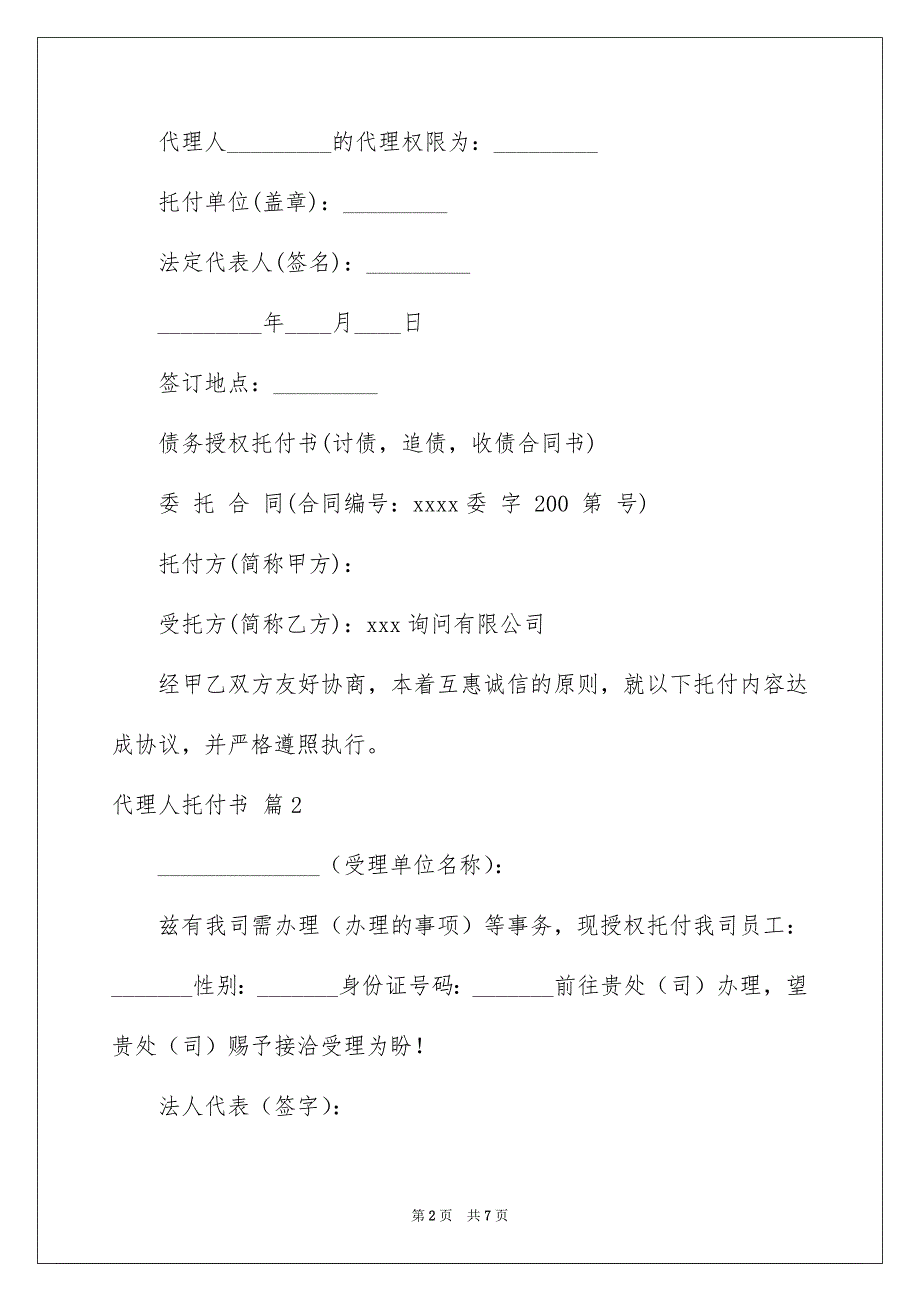 代理人_________的代理权限为：_________
托付单位(盖章)：_________
法定代表人(签名)：_________
_________年____月____日
签订地点：_________
债务授权托付书(讨债，追债，收债合同书)
委 托 合 同(合同编号：xxxx委 字 200 第 号)
托付方(简称甲方)：
受托方(简称乙方)：xxx询问有限公司
经甲乙双方友好协商，本着互惠诚信的原则，就以下托付内容达
成协议，并严格遵照执行。
代理人托付书 篇2
______________（受理单位名称）：
兹有我司需办理（办理的事项）等事务，现授权托付我司员工：
_______性别：_______身份证号码：_______前往贵处（司）办理，望
贵处（司）赐予接洽受理为盼！
法人代表（签字）：
第 2 页 共 7 页